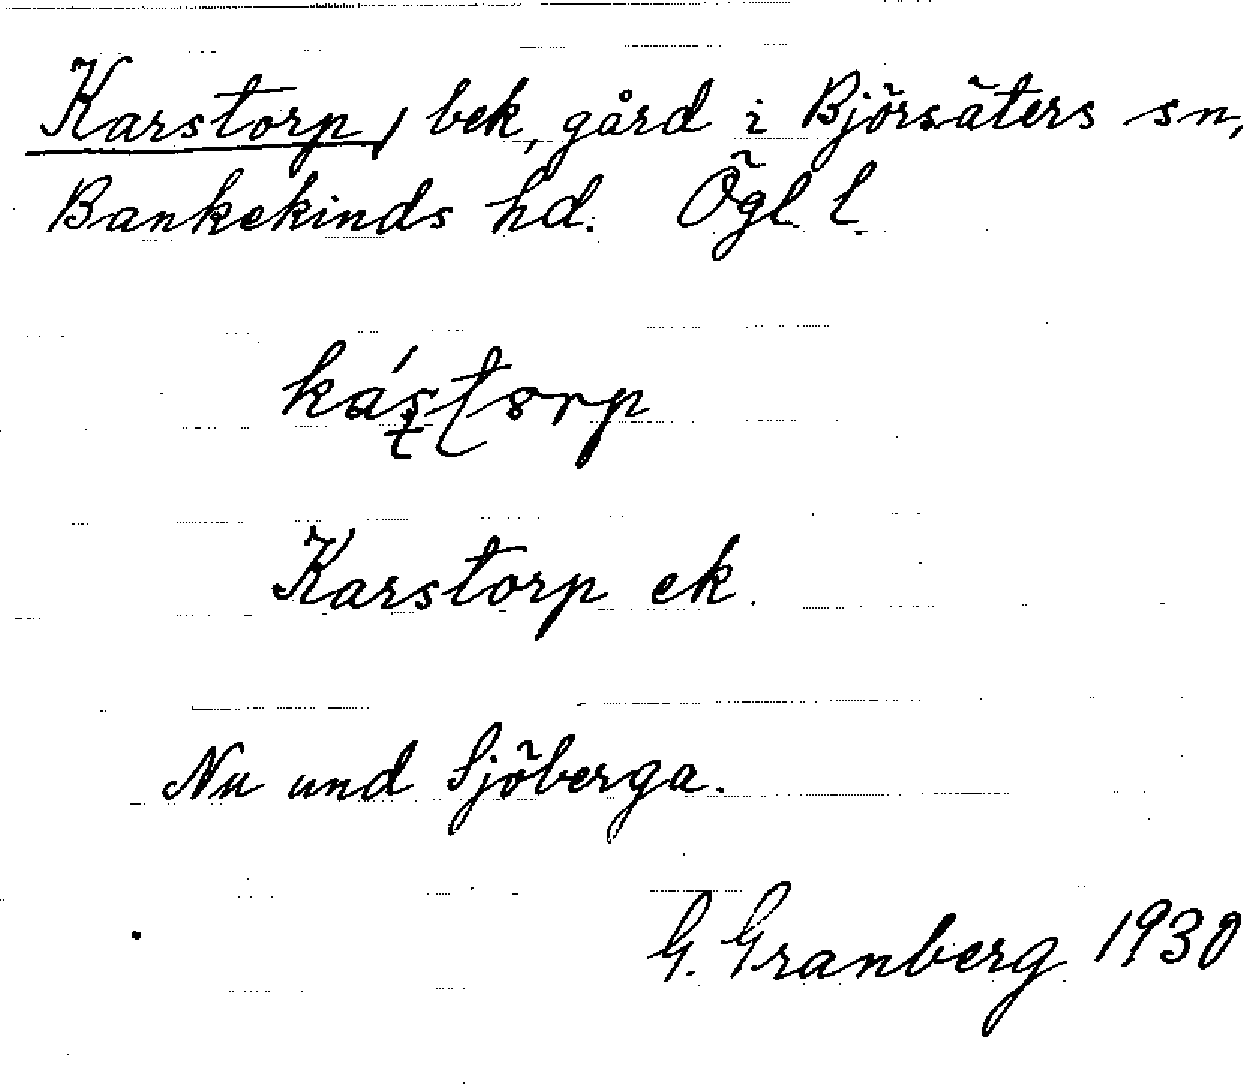 Karstorp, bek, gård i Björsäters sn,
Bankekinds hd. Ögl l
Karstorp ek.
Nu und Sjöberga.
G. Granberg 1930